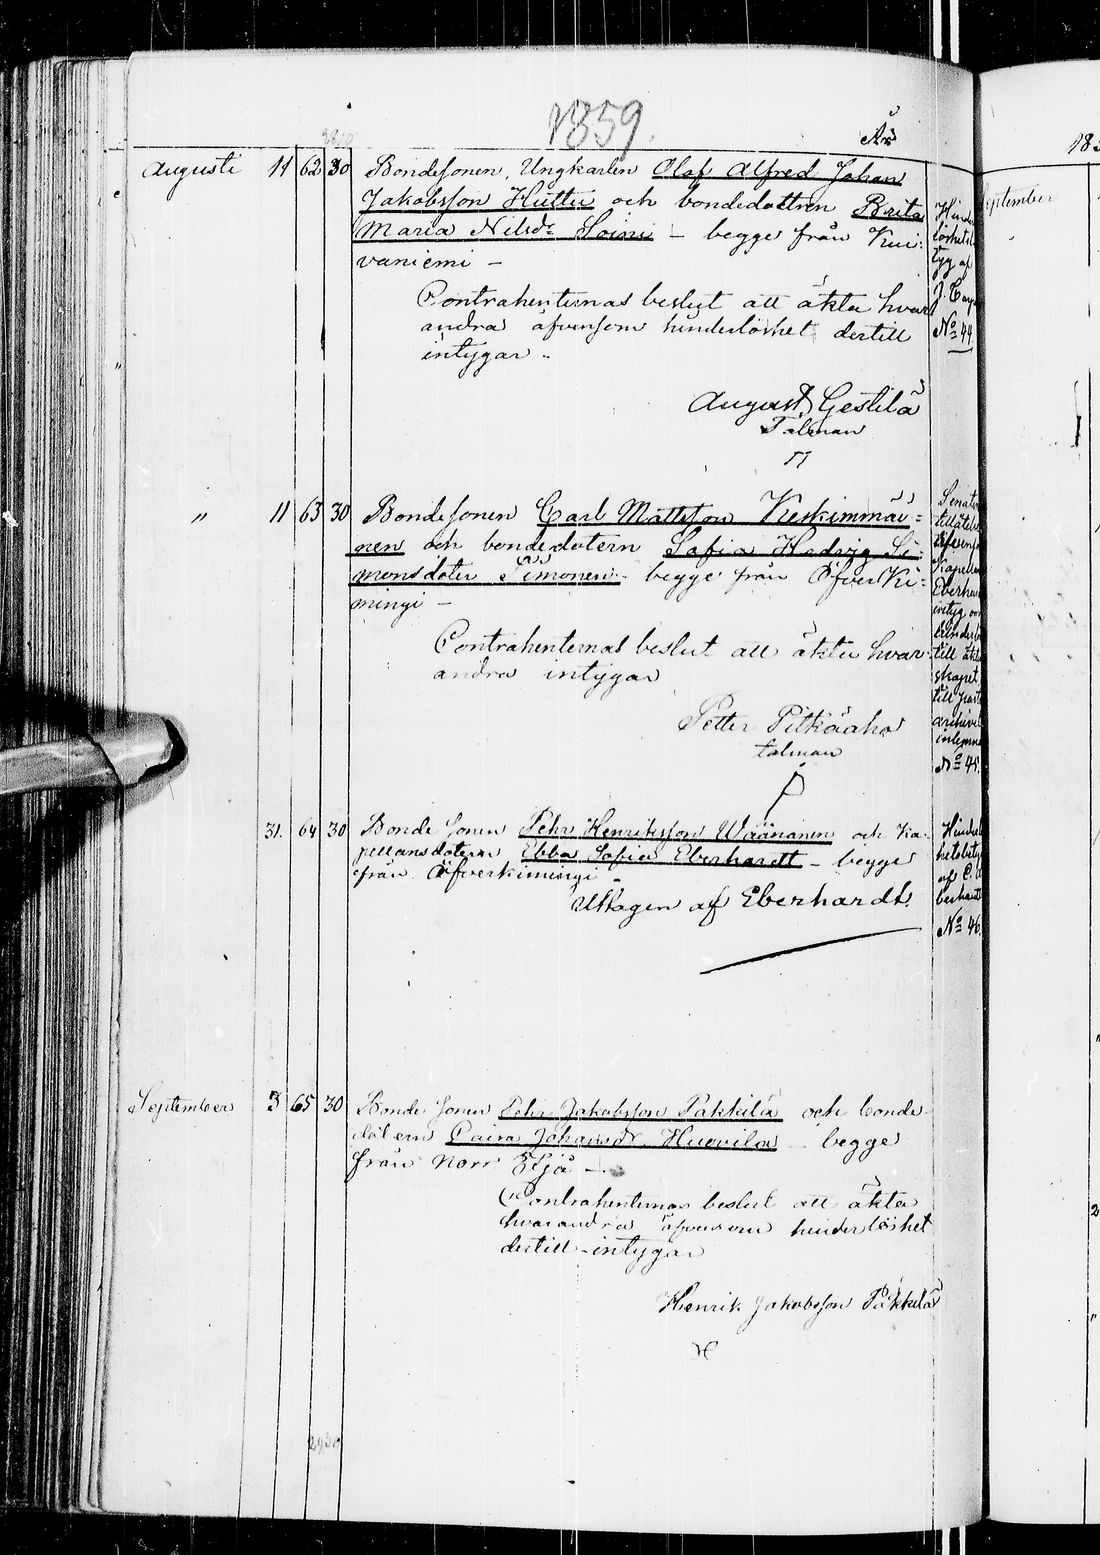 1859.
År
Augusti 11 62 30 Bondesonen, Ungkarlen Olof Alfred Johan
Jakobsson Huttu och bondedottren Brita
Maria Nilsdr Soini – begge från Kui-
vaniemi –
Contrahenternas beslut att äkta hvar
andra äfvensom hinderlöshet dertill
intygar
August Gestilä
Talman
Hinder
löshets
tyg af
J.
No 44
" 11 63 30 Bondesonen Carl Mattsson Keskimmäi=
nen och bondedotern Sofia Hedvig Si=
monsdoter Simonen – begge från Öfver Ki=
mingi –
Contrahenternas beslut att äkta hvar-
andra intygar
Petter Pitkäaho
talman
P
Senatens
tillåtels
Kapellan
Eberhar
intyg om
hinderlö
till äkten
skapet
till past.
archivet
inlemna
No 45.
31. 64 30 Bonde sonen Pehr Henriksson Wäänänen och Ka-
pellansdotern Ebba Sofia Eberhardt – begge
från Öfverkimingi –
Uttagen af Eberhardt.
Hinderl
hetsbety
af C. E
berhardt
No 46.
September 3 65 30 Bonde sonen Pehr Jakobsson Pakkila och bonde-
dotern Caisa Johansdr Huovila – begge
från Norr Ijå –
Contrahenternas beslut att äkta
hvarandra äfvensom hinderlöshet
dertill intygar
Henrik Jakobsson Pakkila
H
185
September